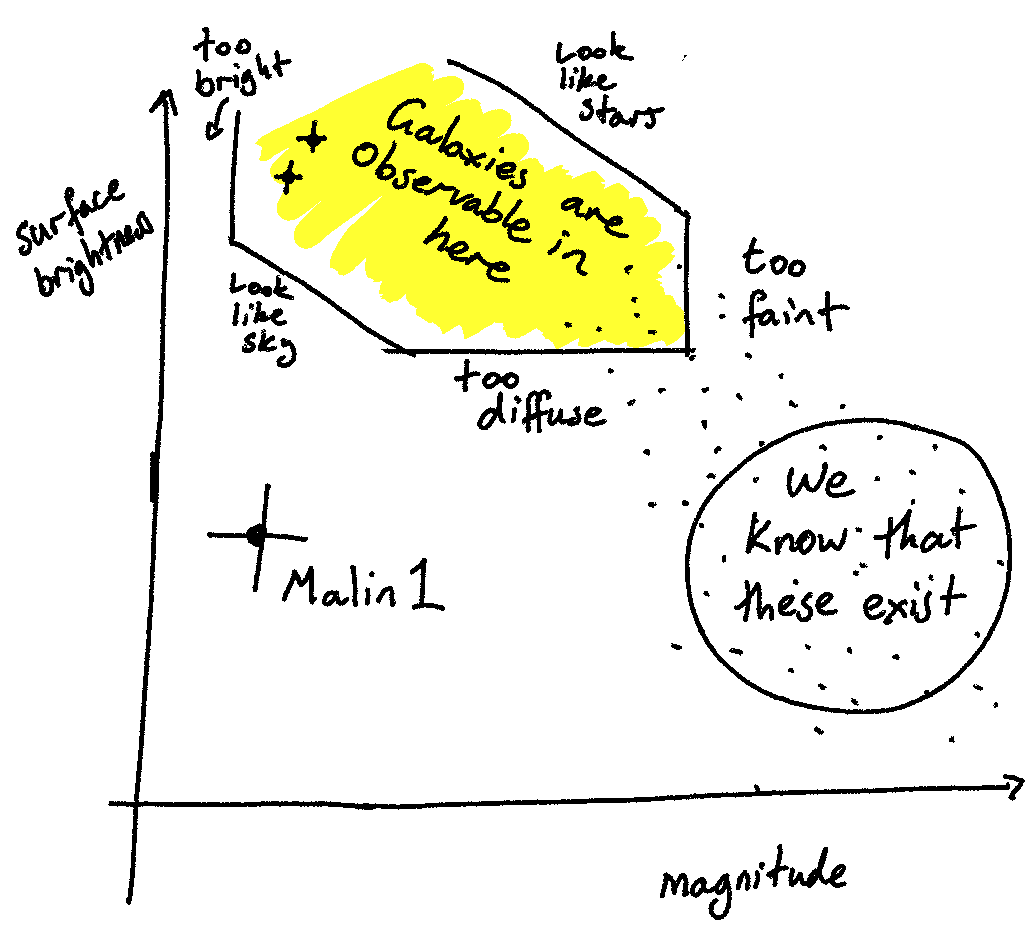 too
bright
Look
like
stars
Galaxies are
observable in
here
surface
brightness
Look
like
sky
too
faint
too
diffuse
We
know that
these exist
Malin 1
magnitude